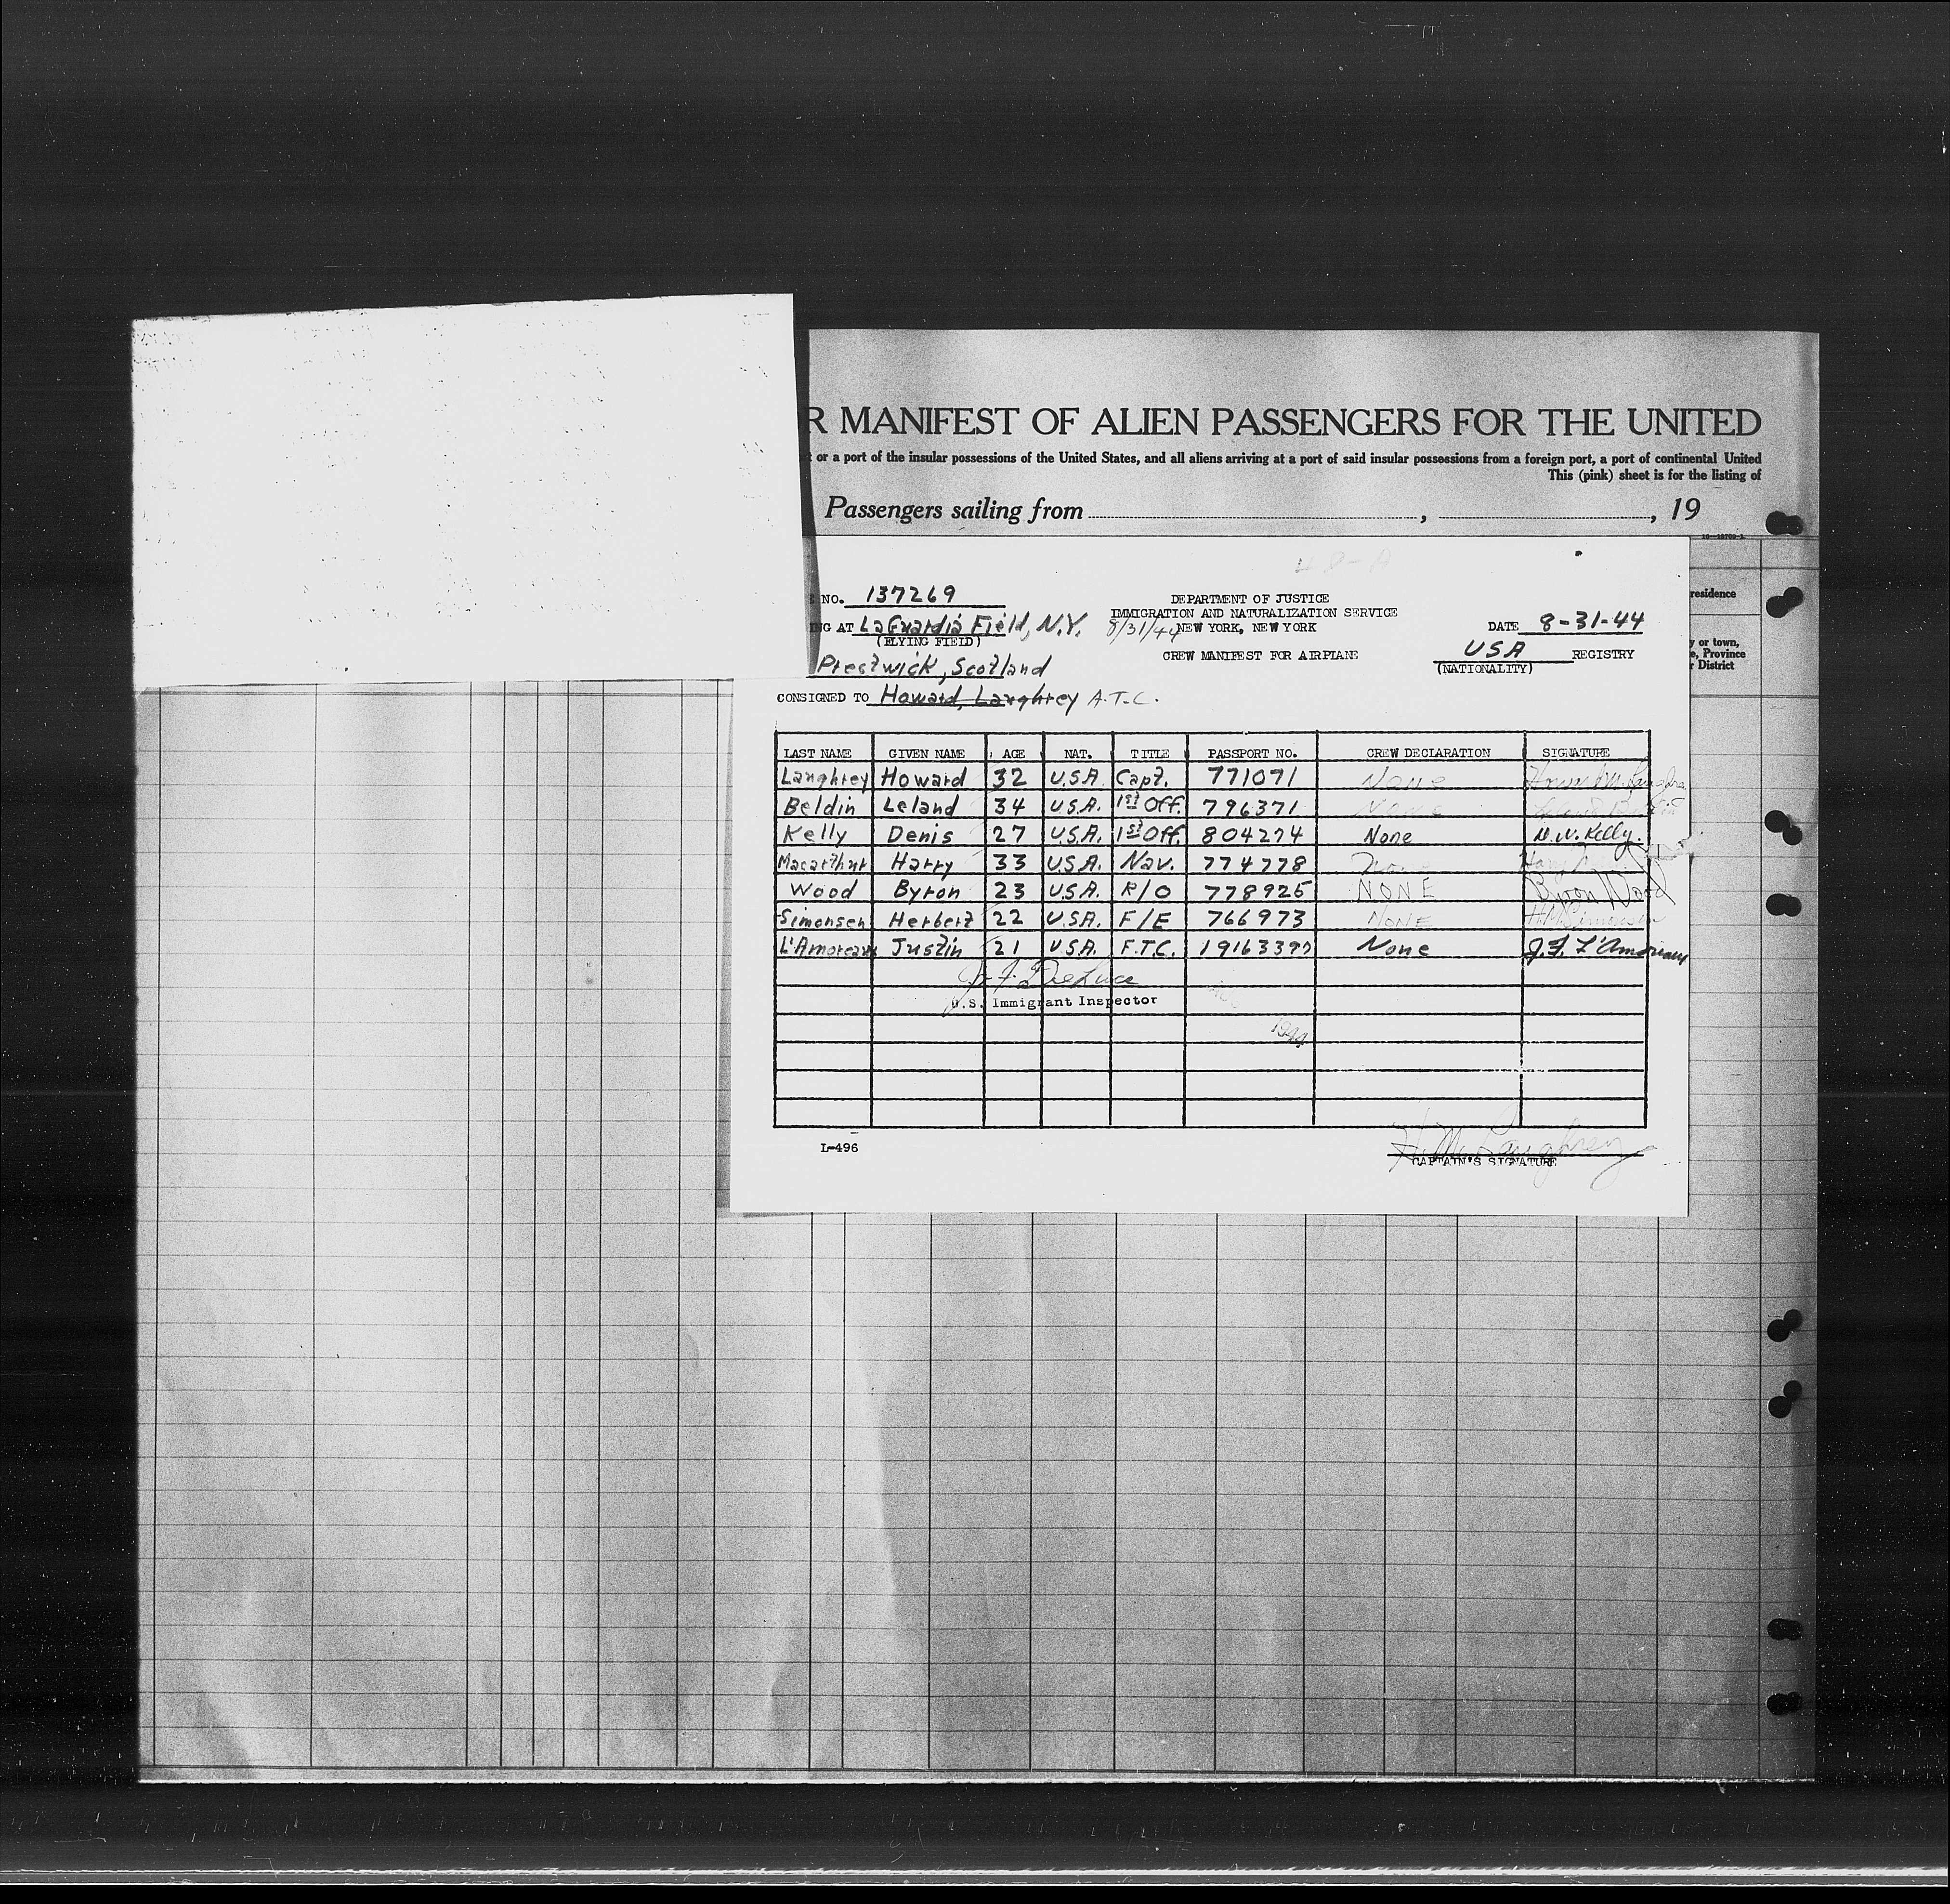 R MANIFEST OF ALIEN PASSENGERS FOR THE UNITED
or a port of the insular possessions of the United States, and all aliens arriving at a port of said insular possessions from a foreign port, a port of continental United
This (pink) sheet is for the listing of
Passengers sailing from , , 19
residence
y or town,
e, Province
r District
48-A
NO. 137269
DEPARTMENT OF JUSTICE
IMMIGRATION AND NATURALIZATION SERVICE
NG AT LaGuardia Field, N.Y. 8/31/44 NEW YORK, NEW YORK DATE 8-31-44
(FLYING FIELD)
Prestwick, Scotland CREW MANIFEST FOR AIRPLANE USA REGISTRY
(NATIONALITY)
CONSIGNED TO Howard, Laughrey A.T.C.
LAST NAME GIVEN NAME AGE NAT. TITLE PASSPORT NO. CREW DECLARATION SIGNATURE
Laughrey Howard 32 U.S.A. Capt. 771071 None
Beldin Leland 34 U.S.A. 1st Off. 796371 None
Kelly Denis 27 U.S.A. 1st Off. 804274 None D.W. Kelly.
Macarthur Harry 33 U.S.A. Nav. 774778
Wood Byron 23 U.S.A. R/O 778925 NONE Byron Wood
Simonsen Herbert 22 U.S.A. F/E 766973 NONE H.M. Simonsen
L'Amoreaux Justin 21 U.S.A. F.T.C. None J.F. L'Amoreaux
U.S. Immigrant Inspector
1944
L-496
H. M. Laughrey
CAPTAIN'S SIGNATURE